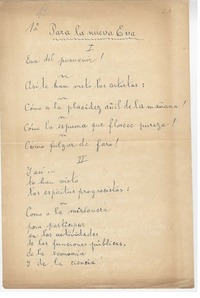 1º Para la nueva Eva
I
Eva del porvenir!
Así te han visto los artistas:
Como a la placidez añil de la mañana!
Como la espuma que florece pureza!
Como fulgor de faro!
II
Y así...
te han visto
los espíritus progresistas:
Como a la
para participar
en las actividades
de las funciones públicas,
de la economía
y de la ciencia